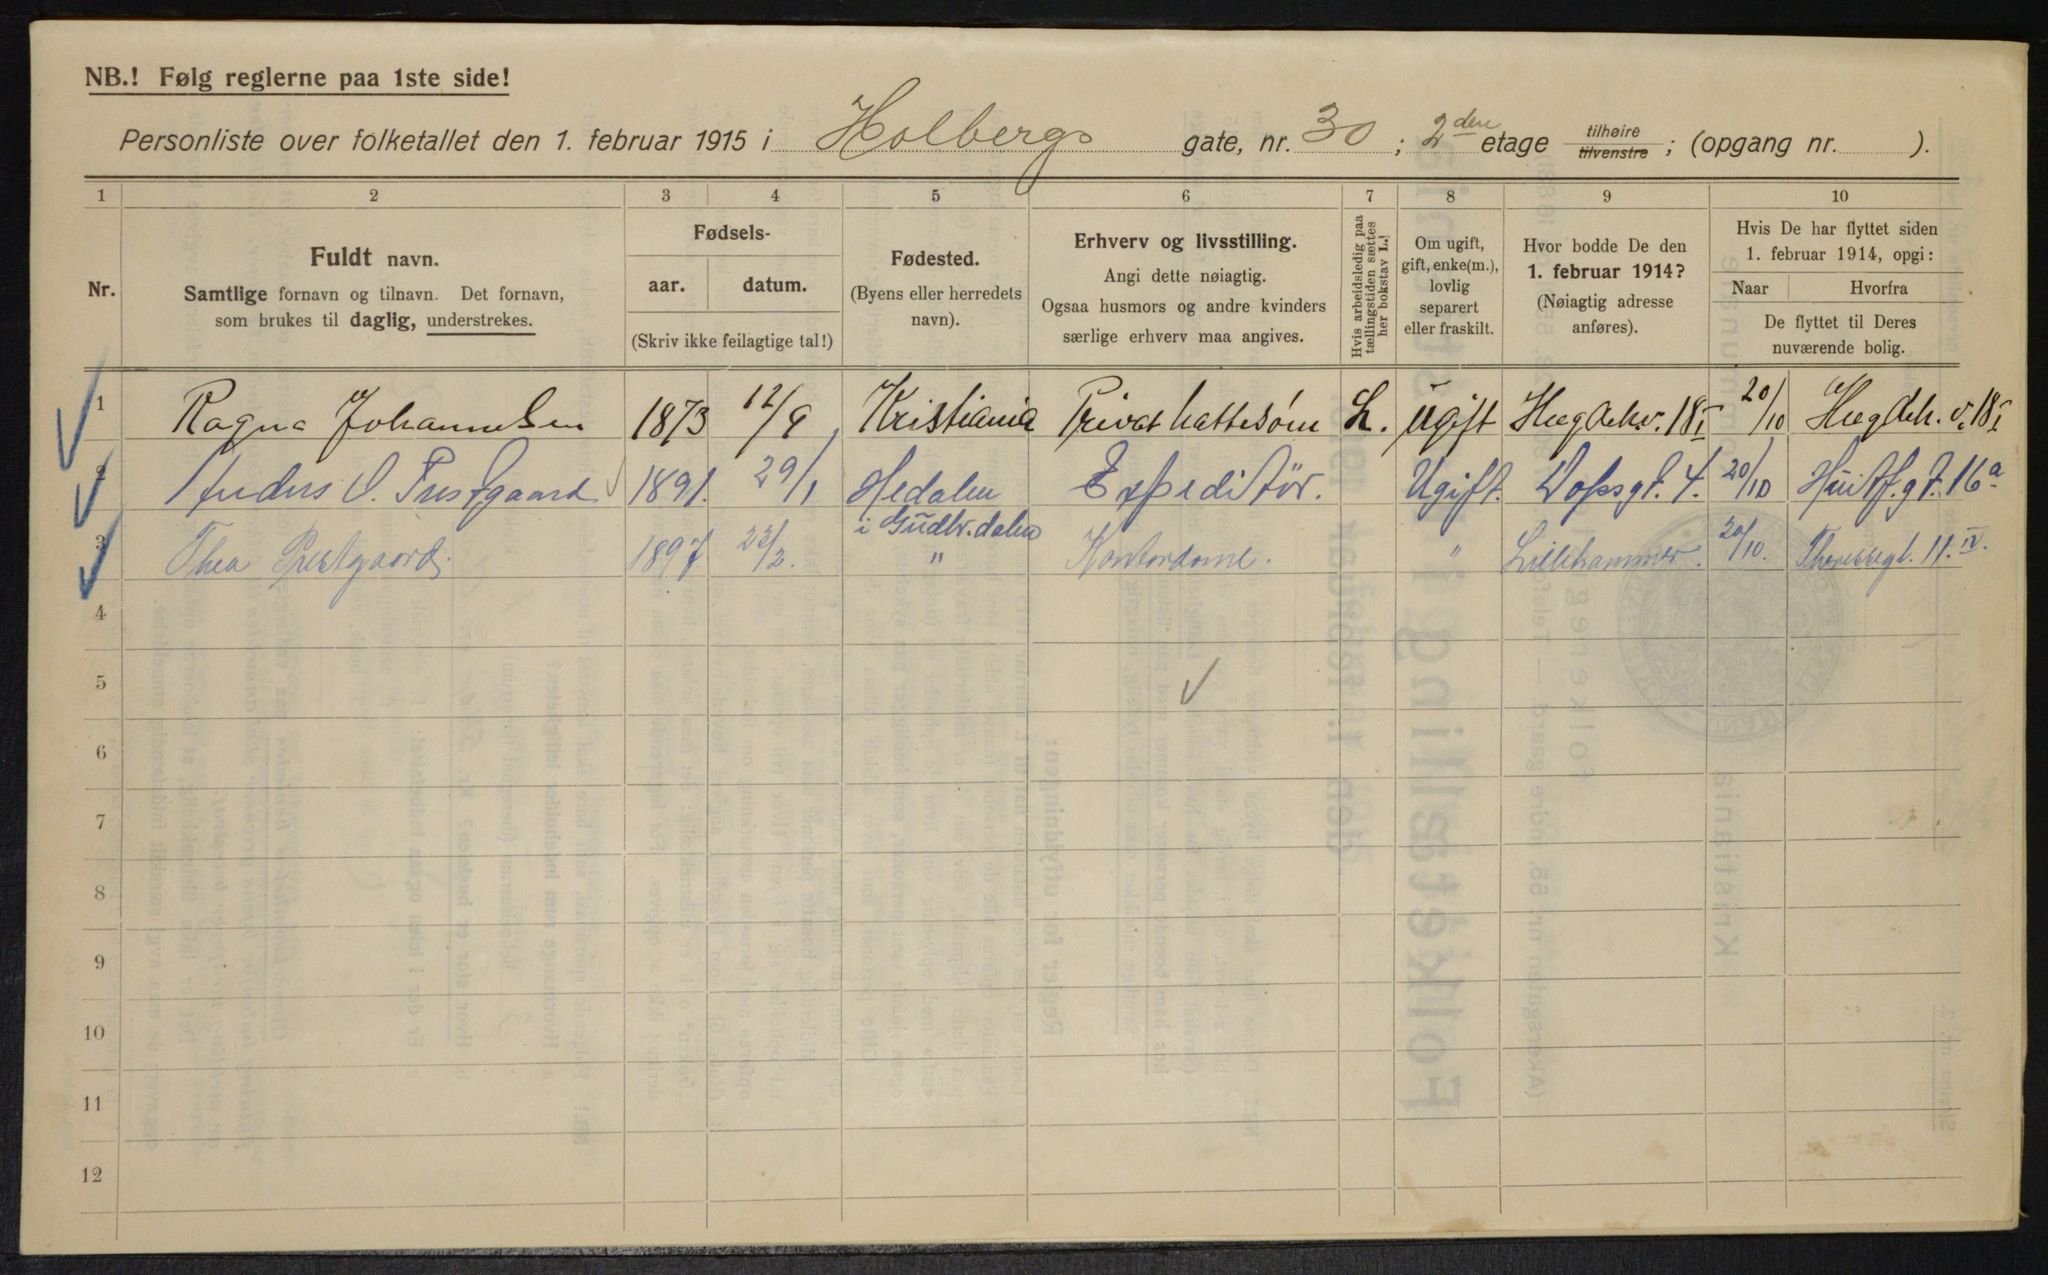 NB.! Følg reglerne paa 1ste side!
Personliste over folketallet den 1. februar 1915 i Holbergs gate, nr. 30 ; 2den etage tilhøire tilvenstre ; (opgang nr. ).
1 2 3 4 5 6 7 8 9 10
Nr.
Fuldt navn.
Samtlige fornavn og tilnavn. Det fornavn,
som brukes til daglig, understrekes.
Fødsels-
aar. datum.
(Skriv ikke feilagtige tal!)
Fødested.
(Byens eller herredets
navn).
Erhverv og livsstilling.
Angi dette nøiagtig.
Ogsaa husmors og andre kvinders
særlige erhverv maa angives.
Hvis arbeidsledig paa
tællingstiden sættes
her bokstav L.!
Om ugift,
gift, enke(m.),
lovlig
separert
eller fraskilt.
Hvor bodde De den
1. februar 1914?
(Nøiagtig adresse
anføres).
Hvis De har flyttet siden
1. februar 1914, opgi:
Naar Hvorfra
De flyttet til Deres
nuværende bolig.
1 Ragna Johannesen 1873 12/9 Kristiania Privat hattesøm L. Ugift Hægdehv. 18 I 20/10 Hægdeh.v. 18 I
2 Anders O. Prestgaard 1891. 29/1 Hedalen Expeditör. Ugift. Vossgt. 4. 20/10 Huitf.gt. 16a
i Gudbr.dalen
3 Thea Prestgaard. 1897 23/2. " Kontordame. " Lillehammer. 20/10. Theressegt. 11. IV.
4
5
6
7
8
9
10
11
12